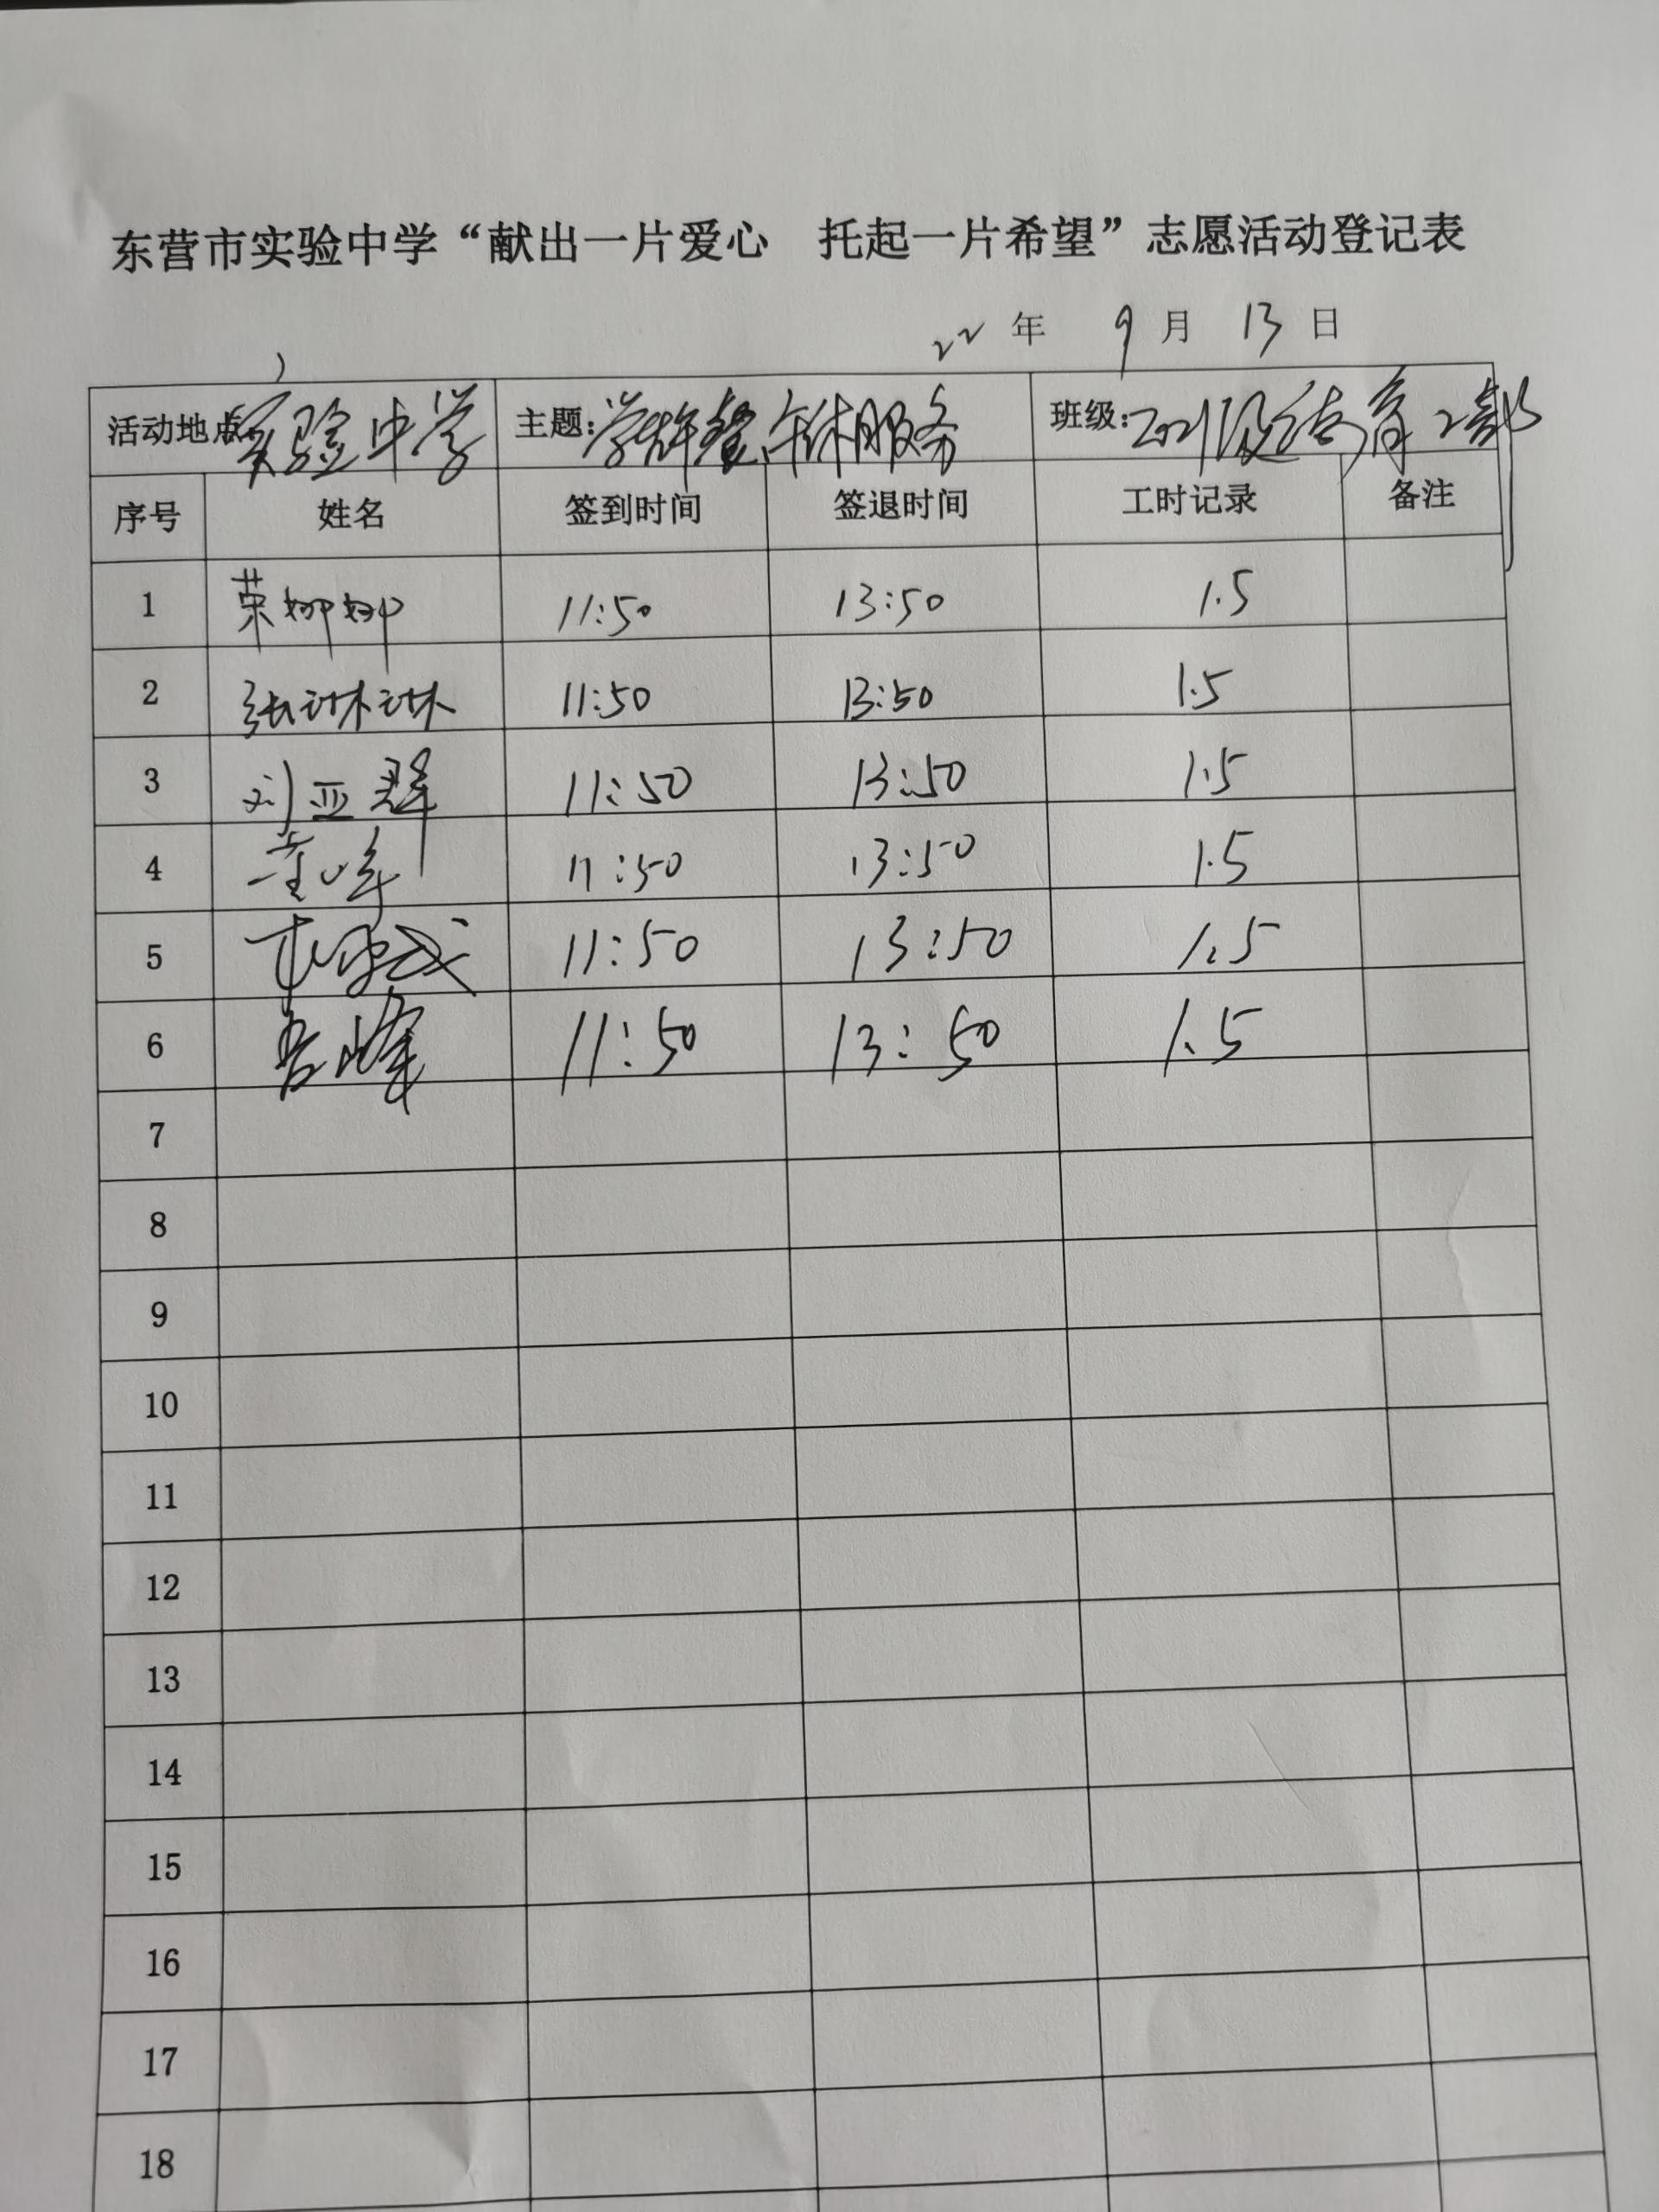 东营市实验中学“献出一片爱心 托起一片希望”志愿活动登记表
22 年 9 月 13 日
活动地点: 实验中学 主题: 学生就餐、午休服务 班级: 2021级德育2部
序号 姓名 签到时间 签退时间 工时记录 备注
1 荣娜娜 11:50 13:50 1.5
2 张琳琳 11:50 13:50 1.5
3 刘亚群 11:50 13:50 1.5
4 11:50 13:50 1.5
5 11:50 13:50 1.5
6 峰 11:50 13:50 1.5
7
8
9
10
11
12
13
14
15
16
17
18